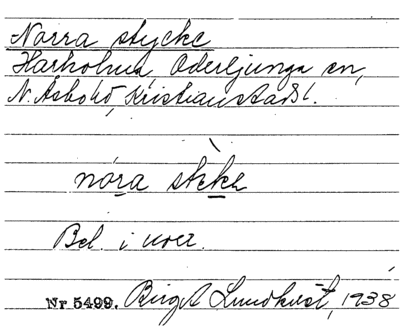 Norra stycke
Harholma, Oderljunga sn,
N. Åsbo hd, Kristianstads l.
nóra stèka
Bel. i
Nr 5499. Birgit Lundkvist, 1938